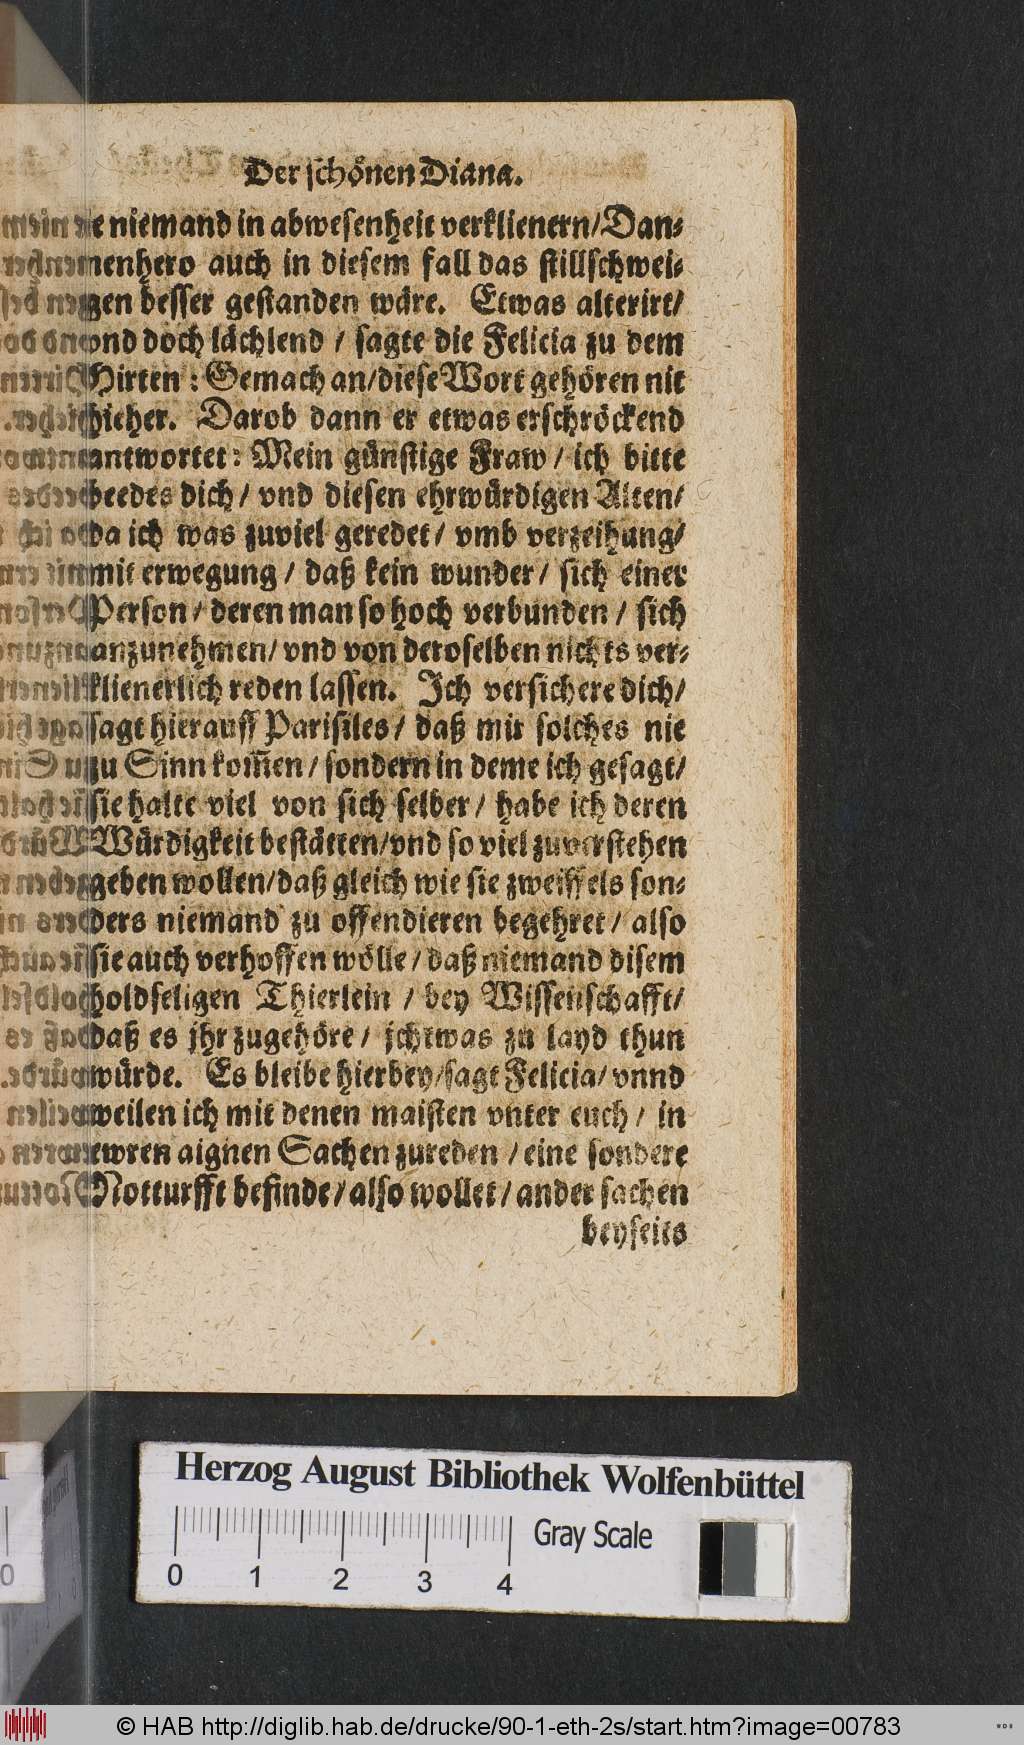 Der schönen Diana.
niemand in abwesenheit verklienern/Dan-
nenhero auch in diesem fall das stillschwei-
gen besser gestanden wäre. Etwas alterirt/
vnd doch lächlend / sagte die Felicia zu dem
Hirten : Gemach an/diese Wort gehören nit
hieher. Darob dann er etwas erschröckend
antwortet: Mein günstige Fraw / ich bitte
beedes dich / vnd diesen ehrwürdigen Alten/
da ich was zuviel geredet / vmb verzeihung/
mit erwegung / daß kein wunder / sich einer
Person / deren man so hoch verbunden / sich
anzunehmen/ vnd von deroselben nichts ver-
klienerlich reden lassen. Ich versichere dich/
sagt hierauff Parisiles / daß mir solches nie
zu Sinn kom̄en / sondern in deme ich gesagt/
sie halte viel von sich selber / habe ich deren
Würdigkeit bestätten/vnd so viel zuverstehen
geben wollen/daß gleich wie sie zweiffels son-
ders niemand zu offendieren begehret / also
sie auch verhoffen wölle / daß niemand disem
holdseligen Thierlein / bey Wissenschafft/
daß es jhr zugehöre / jchtwas zu layd thun
würde. Es bleibe hierbey/sagt Felicia/ vnnd
weilen ich mit denen maisten vnter euch / in
ewren aignen Sachen zureden / eine sondere
Notturfft befinde / also wollet / ander sachen
beyseits
Herzog August Bibliothek Wolfenbüttel
Gray Scale
0 1 2 3 4
© HAB http://diglib.hab.de/drucke/90-1-eth-2s/start.htm?image=00783